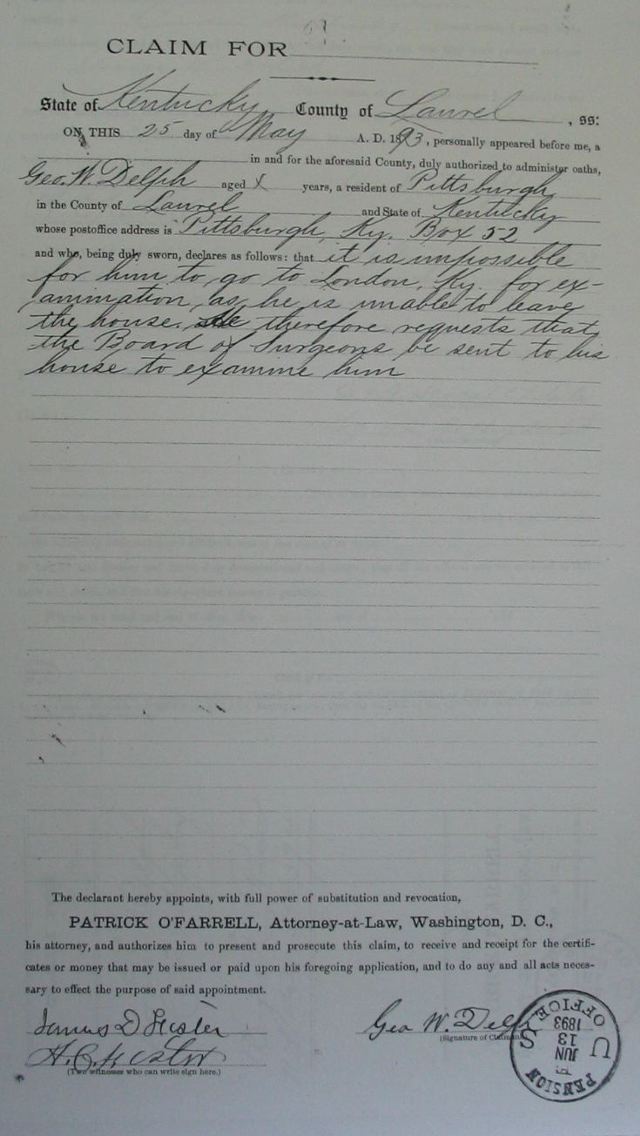 CLAIM FOR
State of Kentucky County of Laurel, ss:
ON THIS 25 day of May A. D. 1893, personally appeared before me, a
in and for the aforesaid County, duly authorized to administer oaths,
Geo. W. Delph aged X years, a resident of Pittsburgh
in the County of Laurel and State of Kentucky
whose postoffice address is Pittsburgh, Ky. Box 52
and who, being duly sworn, declares as follows: that it is impossible
for him to go to London, Ky. for ex-
animation, as he is unable to leave
the house. He therefore requests that
the Board of Surgeons be sent to his
house to examine him
The declarant hereby appoints, with full power of substitution and revocation,
PATRICK O'FARRELL, Attorney-at-Law, Washington, D. C.,
his attorney, and authorizes him to present and prosecute this claim, to receive and receipt for the certifi-
cates or money that may be issued or paid upon his foregoing application, and to do any and all acts neces-
sary to effect the purpose of said appointment.
James D Hester
Geo W. Delph
(Signature of Claimant.)
H. C. Hester
(Two witnesses who can write sign here.)
U S PENSION OFFICE
JUN
13
1893